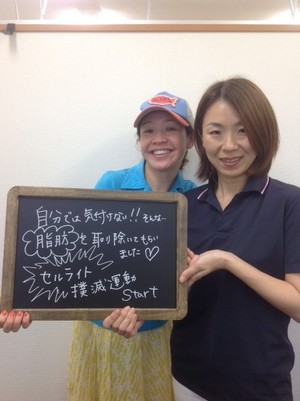 自分では気付けない!!そんな…
脂肪を取り除いてもらい
ました♡
セルライト
撲滅運動
Start